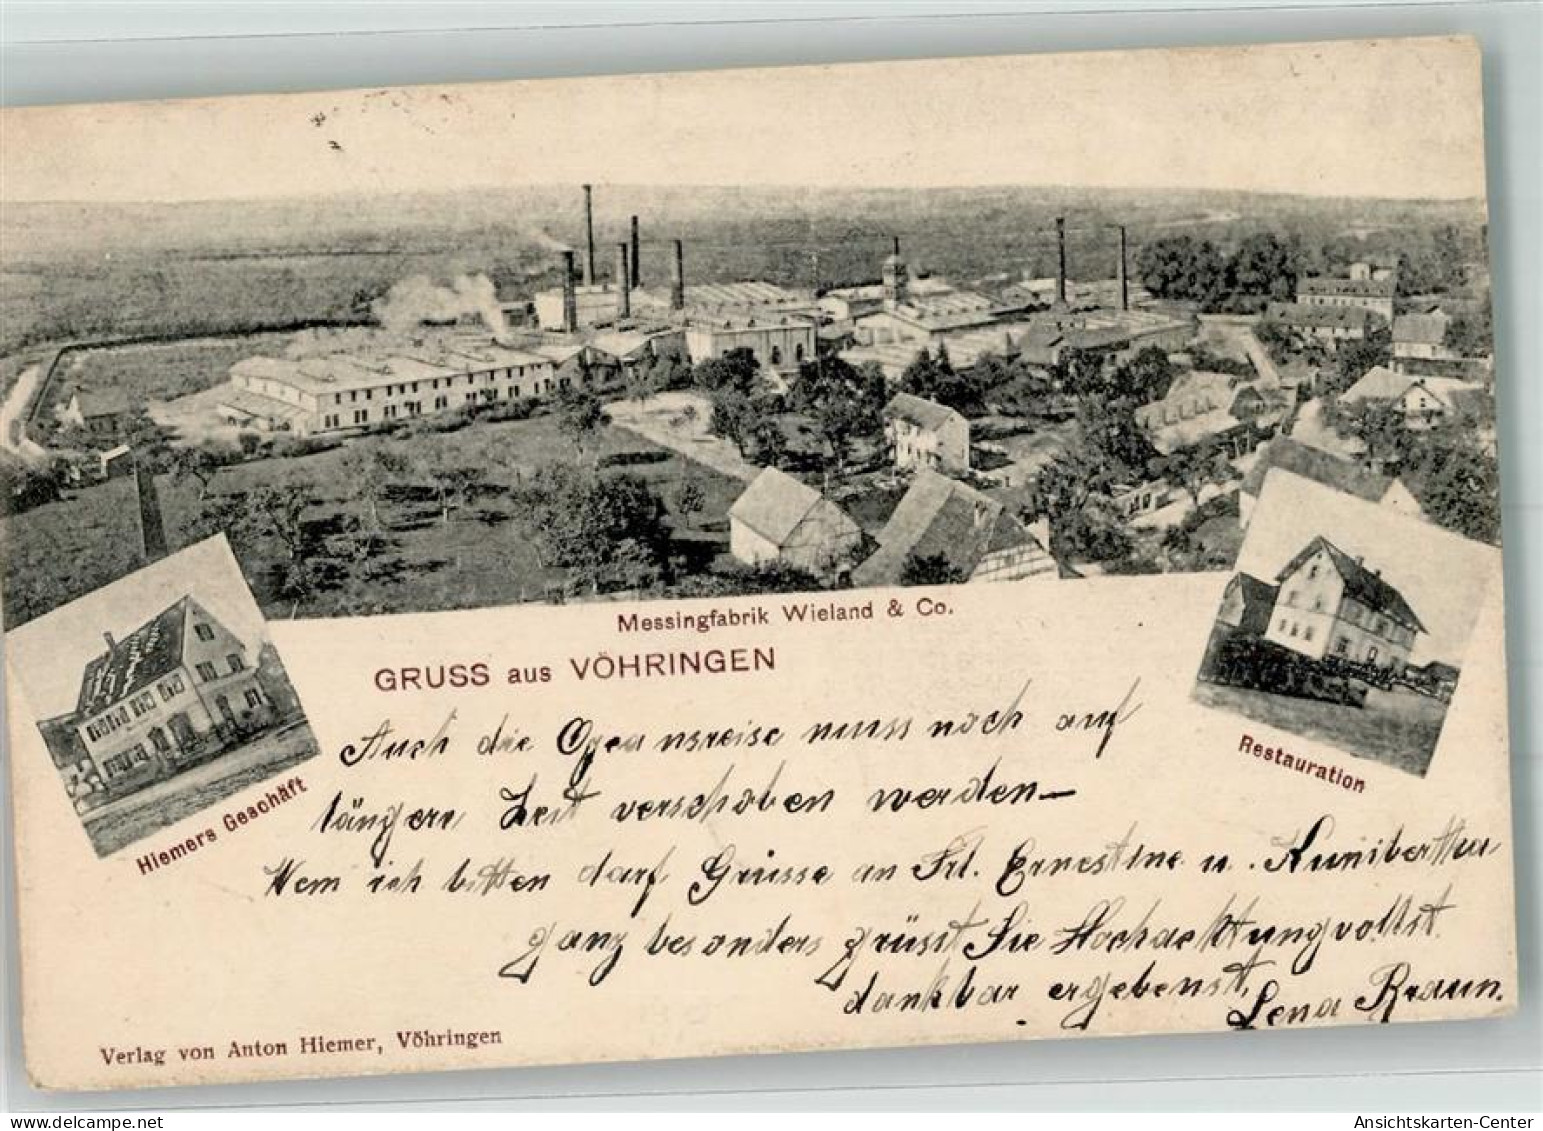 Messingfabrik Wieland & Co.
GRUSS aus VÖHRINGEN
Hiemers Geschäft
Restauration
Auch die Organsreise muss noch auf
längere Zeit verschoben werden—
Wem ich bitten darf Grüsse an Frl. Ernestine u. Kunibertha
ganz besonders grüsst Sie Hochachtungvollst
dankbar ergebenst,
Lena Braun.
Verlag von Anton Hiemer, Vöhringen
Ansichtskarten-Center